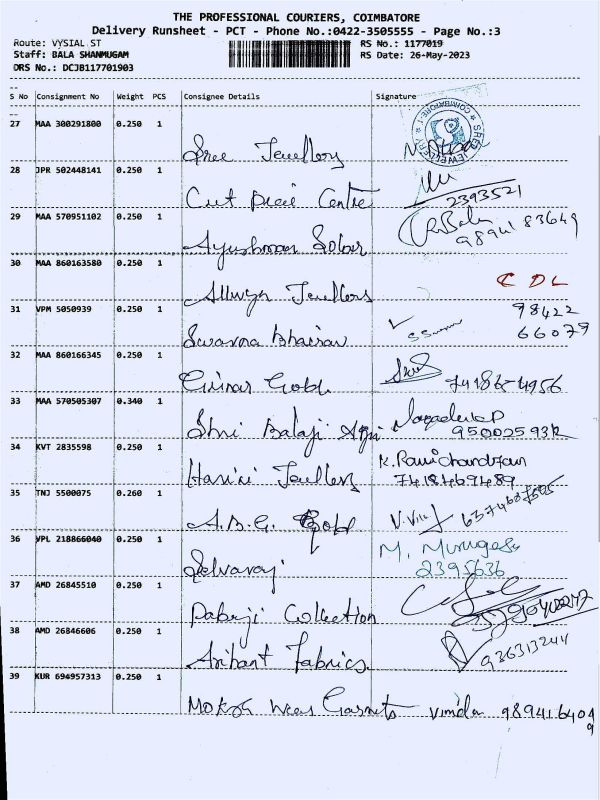 THE PROFESSIONAL COURIERS, COIMBATORE
Delivery Runsheet - PCT - Phone No.:0422-3505555 - Page No.:3
Route: VYSIAL ST
RS No.: 1177019
Staff: BALA SHANMUGAM
RS Date: 26-May-2023
DRS No.: DCJB117701903
S No Consignment No Weight PCS Consignee Details Signature
27 MAA 300291800 0.250 1
Sree Jewellery
28 JPR 502448141 0.250 1
Cut Piece Centre 2393521
29 MAA 570951102 0.250 1
Ayushman Solar R Balu 98941 83649
30 MAA 860163580 0.250 1
Allwyn Jewellers CDL
31 VPM 5050939 0.250 1
98422
Swarna Bhairav 66079
32 MAA 860166345 0.250 1
Gold 74186-4956
33 MAA 570505307 0.340 1
Shri Balaji
34 KVT 2835598 0.250 1
Harini Jewellers K. Ramichandran
7418469489
35 TNJ 5500075 0.260 1
A.B.G. Gold
36 VPL 218866040 0.250 1
M. Murugesh
Selvaraj 2395636
37 AMD 26845510 0.250 1
Collection
38 AMD 26846606 0.250 1
Arihant Fabrics 936313244
39 KUR 694957313 0.250 1
Garments 9894164049